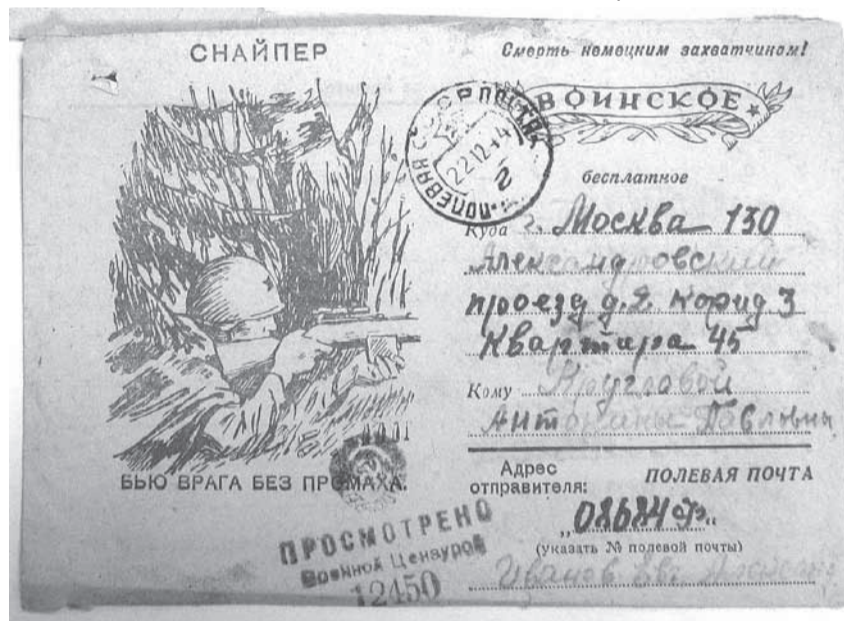 СНАЙПЕР
Смерть немецким захватчикам!
ПОЛЕВАЯ ПОЧТА
22 12 44
2
ВОИНСКОЕ
бесплатное
Куда г. Москва 130
Александровский
проезд д. 8. Корид 3
Квартира 45
Кому Кругловой
Антонины Павловны
БЬЮ ВРАГА БЕЗ ПРОМАХА.
Адрес отправителя:
ПОЛЕВАЯ ПОЧТА
08684 Ф
(указать № полевой почты)
Иванов
ПРОСМОТРЕНО
Военной Цензурой
12450